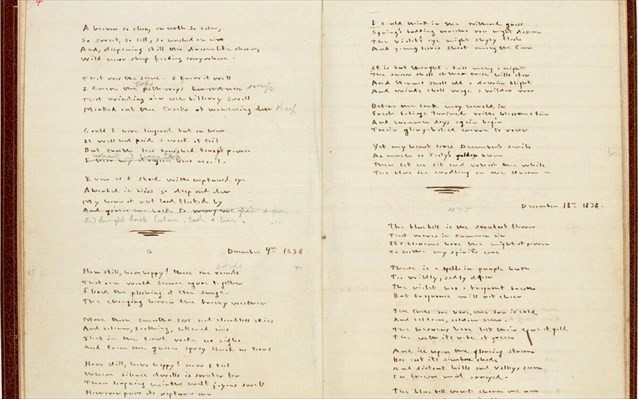 A heaven so clear, an earth so calm,
So sweet, so soft, so hushed an air
And, deepening still the dreamlike charm,
Wild moor-sheep feeding everywhere -
That was the scene - I knew it well
I knew the pathways
That winding o'er each billowy swell
Marked out the tracks of wandering deer sheep
Could I have lingered but an hour
It well had paid a week of toil
But truth has banished fancy's power
I hear my dungeon bars recoil -
Even as I stood with raptured eye
Absorbed in bliss so deep and dear
My hour of rest had fleeted by
And given me back to weary care
And brought back labour, care
December 7th 1838
How still, how happy! those are words
That once would scarce agree together
I loved the plashing of the surge
The changing heaven the breezy weather
More than smooth seas and cloudless skies
And solemn, soothing, softened airs
That in the forest woke no sighs
And from the green spray shook no tears
How still, how happy! now I feel
Where silence dwells is sweeter far
Than laughing mirth's most joyous swell
However pure its raptures are
I could think in the withered grass
Spring's budding wreaths we might discern
The violet's eye might shyly flash
And young leaves shoot among the fern
It is but thought - full many a night
The snow shall clothe those hills afar
And storms shall add a drearier blight
And winds shall wage a wilder war
Before the lark may herald in
Fresh foliage twined with blossoms fair
And summer days again begin
Their glory-haloed crown to wear
Yet my heart loves December's smile
As much as July's golden beam
Then let us sit and watch the while
The blue ice curdling on the stream -
December 18th 1838.
The bluebell is the sweetest flower
That waves in summer air
Its blossoms have the mightiest power
To soothe my spirit's care
There is a spell in purple heath
Too wildly, sadly dear
The violet has a fragrant breath
But fragrance will not cheer
The trees are bare, the sun is cold
And seldom, seldom seen -
The heavens have lost their zone of gold
The earth its robe of green
And ice upon the glancing stream
Has cast its sombre shade
And distant hills and valleys seem
In frozen mist arrayed -
The bluebell cannot charm me now